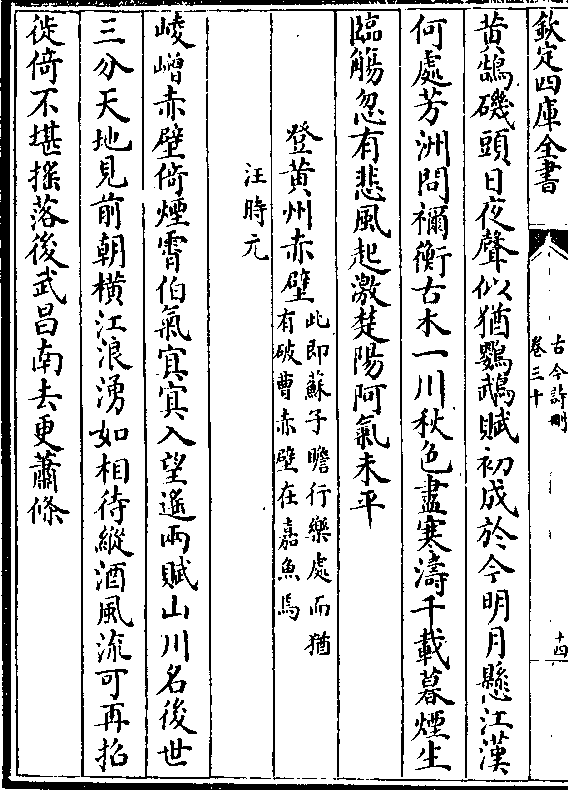 欽定四庫全書
古今詩刪
卷三十
十四
黄鵠磯頭日夜聲似猶鸚鵡賦初成於今明月懸江漢
何處芳洲問禰衡古木一川秋色盡寒濤千載暮煙生
臨觴忽有悲風起激楚陽阿氣未平
登黄州赤壁
此即蘇子瞻行樂處而猶
有破曹赤壁在嘉魚焉
汪時元
崚嶒赤壁倚煙霄伯氣寘寘入望遙兩賦山川名後世
三分天地見前朝横江浪湧如相待縱酒風流可再招
徙倚不堪摇落後武昌南去更蕭條